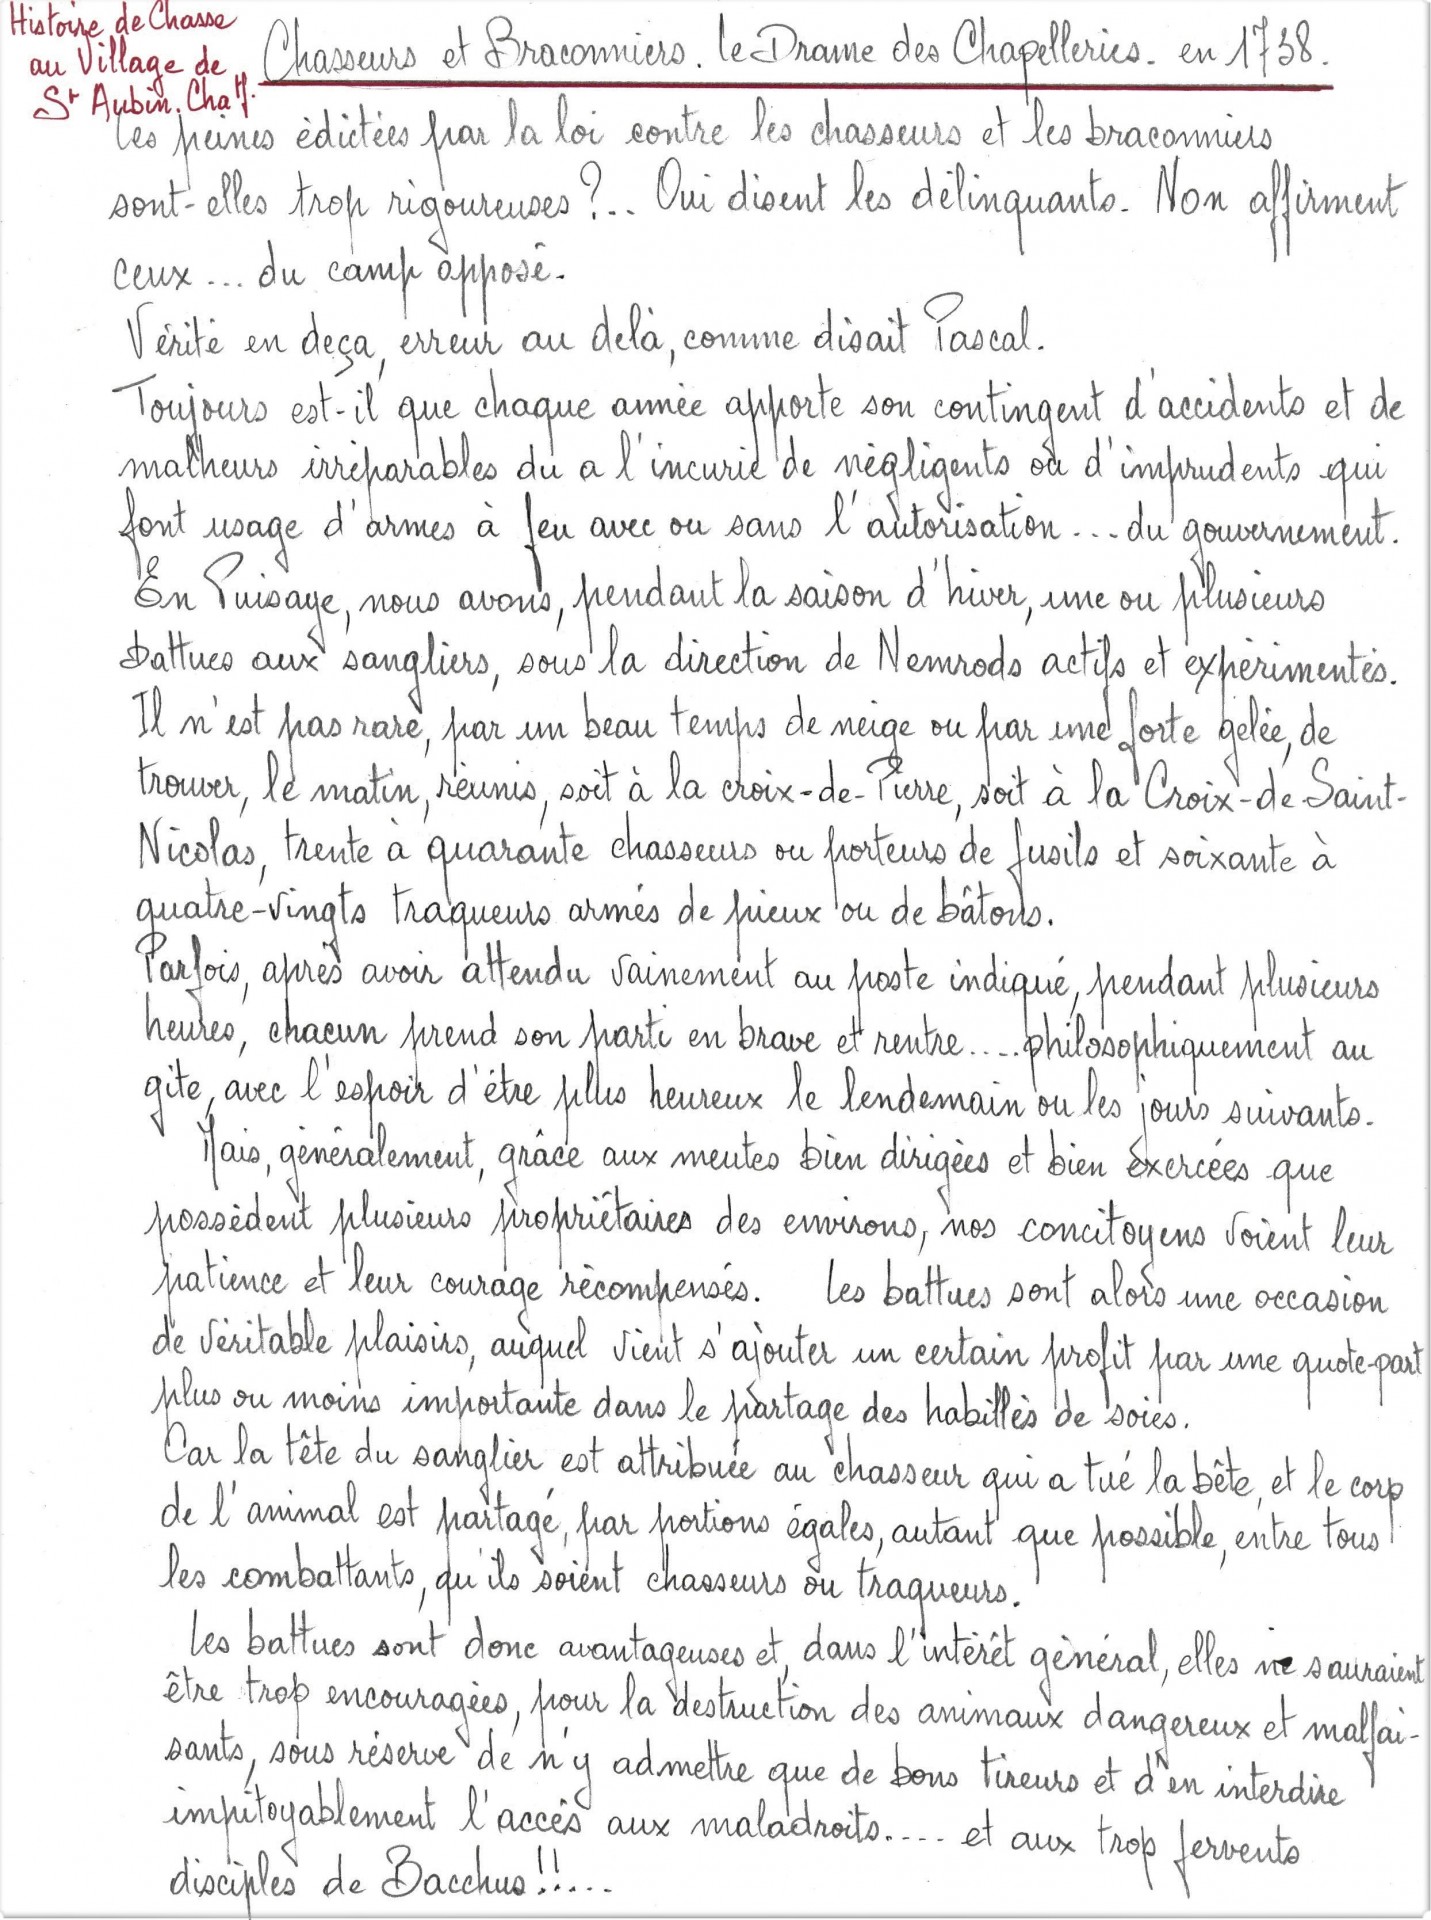 Histoire de Chasse
au Village de
St Aubin. Chat.
Chasseurs et Braconniers. Le Drame des Chapelleries. en 1738.
Les peines édictées par la loi contre les chasseurs et les braconniers
sont-elles trop rigoureuses ?.. Oui disent les délinquants. Non affirment
ceux ... du camp opposé.
Vérité en deça, erreur au delà, comme disait Pascal.
Toujours est-il que chaque année apporte son contingent d'accidents et de
malheurs irréparables du a l'incurie de négligents où d'imprudents qui
font usage d'armes à feu avec ou sans l'autorisation ... du gouvernement.
En Puisaye, nous avons, pendant la saison d'hiver, une ou plusieurs
battues aux sangliers, sous la direction de Nemrods actifs et expérimentés.
Il n'est pas rare, par un beau temps de neige ou par une forte gelée, de
trouver, le matin, réunis, soit à la croix-de-Pierre, soit à la Croix-de-Saint-
Nicolas, trente à quarante chasseurs ou porteurs de fusils et soixante à
quatre-vingts traqueurs armés de pieux ou de bâtons.
Parfois, après avoir attendu vainement au poste indiqué, pendant plusieurs
heures, chacun prend son parti en brave et rentre.....philosophiquement au
gite, avec l'espoir d'être plus heureux le lendemain ou les jours suivants.
Mais, généralement, grâce aux meutes bien dirigées et bien éxercées que
possèdent plusieurs propriétaires des environs, nos concitoyens voient leur
patience et leur courage récompensés. Les battues sont alors une occasion
de véritable plaisirs, auquel vient s'ajouter un certain profit par une quote-part
plus ou moins importante dans le partage des habillés de soies.
Car la tête du sanglier est attribuée au chasseur qui a tué la bête, et le corp
de l'animal est partagé, par portions égales, autant que possible, entre tous
les combattants, qu'ils soient chasseurs ou traqueurs.
Les battues sont donc avantageuses et, dans l'intérêt général, elles ne sauraient
être trop encouragées, pour la destruction des animaux dangereux et malfai-
sants, sous réserve de n'y admettre que de bons tireurs et d'en interdire
impitoyablement l'accès aux maladroits.... et aux trop fervents
disciples de Bacchus !!.....